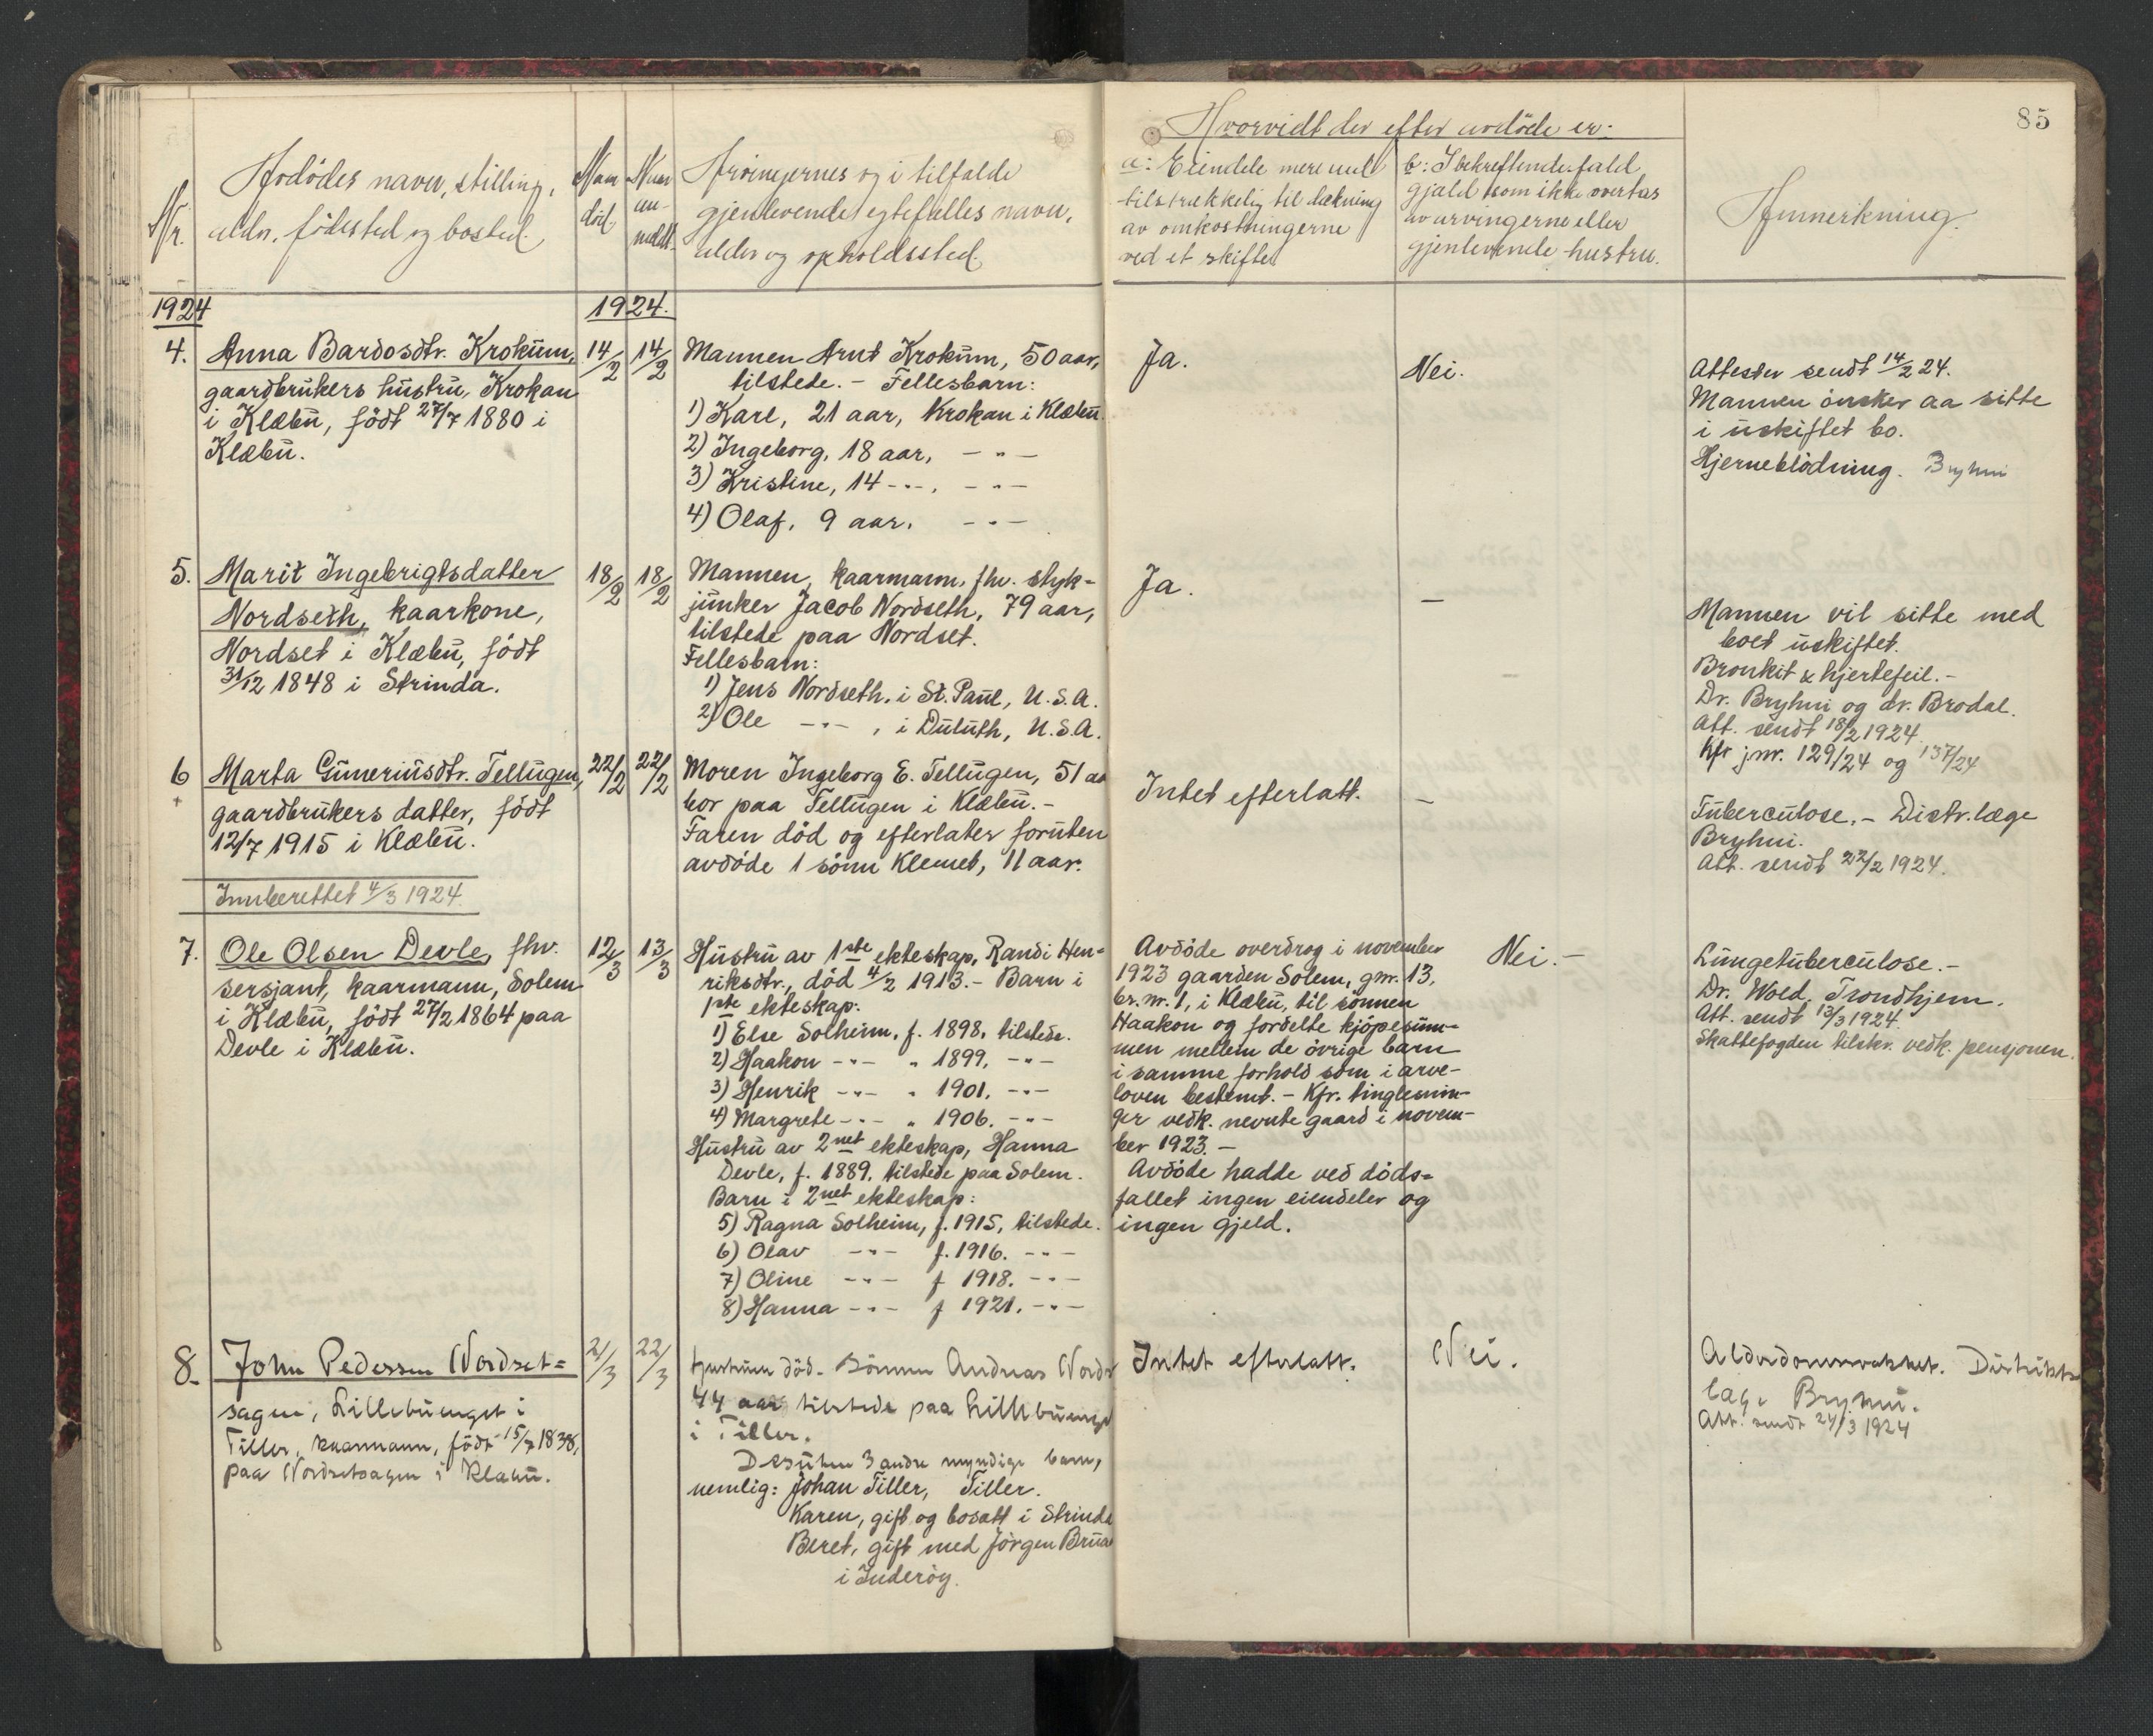 85
Nr.
Avdödes navn, stilling,
alder, fødested og bosted
Naar
död
Naar
an-
meldt
Arvingernes og i tilfælde
gjenlevende egtefælles navn,
alder og opholdssted.
Hvorvidt der efter avdöde er:
a: Eiendele mere end
tilstrækkelig til dækning
av omkostningerne
ved et skifte
b: I bekræftende fald
gjæld som ikke overtas
av arvingerne eller
gjenlevende hustru.
Anmerkning.
1924
1924.
4.
Anna Bardosdtr. Krokum,
gaardbrukers hustru, Krokan
i Klæbu, född 27/7 1880 i
Klæbu.
14/2
14/2
Mannen Arnt Krokum, 50 aar,
tilstede. - Fellesbarn:
1) Karl, 21 aar, Krokan i Klæbu
2) Ingeborg, 18 aar, - " -
3) Kristine, 14 - " -, - " -
4) Olaf, 9 aar, - " -
Ja.
Nei.
Attester sendt 14/2 24.
Mannen önsker aa sitte
i uskiftet bo.
Hjerneblödning. Bryhni
5.
Marit Ingebrigtsdatter
Nordseth, kaarkone,
Nordset i Klæbu, födt
31/12 1848 i Strinda.
18/2
18/2
Mannen, kaarmann, fhv. styk-
junker Jacob Nordseth, 79 aar,
tilstede paa Nordset.
Fellesbarn:
1) Jens Nordseth, i St. Paul, U.S.A.
2) Ole - " - , i Duluth, U.S.A.
Ja.
-
Mannen vil sitte med
boet uskiftet.
Bronkit & hjertefeil. -
Dr. Bryhni og dr. Brodal.
Att. sendt 18/2 1924
Kfr jnr. 129/24 og 137/24
6
+
Marta Guneriusdtr. Tellugen,
gaardbrukers datter, födt
12/7 1915 i Klæbu.
22/2
22/2
Moren Ingeborg E. Tellugen, 51 aa
bor paa Tellugen i Klæbu. -
Faren död og efterlater foruten
avdöde 1 sönn Klemet, 11 aar.
Intet efterlatt.
-
Tuberculose. - Distr.læge
Bryhni.
Att. sendt 22/2 1924.
Innberettet 4/3 1924.
7.
Ole Olsen Devle, fhv.
sersjant, kaarmann, Solem
i Klæbu, födt 27/2 1864 paa
Devle i Klæbu.
12/3
13/3
Hustru av 1ste ekteskap, Randi Hen-
riksdtr., död 4/2 1913. - Barn i
1ste ekteskap:
1) Else Solheim, f. 1898, tilstede.
2) Haakon - " - " 1899, - " -
3) Henrik - " - " 1901. - " -
4) Margrete - " - " 1906. - " -
Hustru av 2net ekteskap, Hanna
Devle, f. 1889, tilstede paa Solem.
Barn i 2net ekteskap:
5) Ragna Solheim, f. 1915, tilstede.
6) Olav - " - f. 1916. - " -
7) Oline - " - f 1918. - " -
8) Hanna - " - f 1921. - " -
Avdöde overdrog i november
1923 gaarden Solem, gnr. 13,
br. nr. 1, i Klæbu, til sönnen
Haakon og fordelte kjöpesum-
men mellem de övrige barn
i samme forhold som i arve-
loven bestemt. - Kfr. tinglesnin-
ger vedk. nevnte gaard i novem-
ber 1923. -
Avdöde hadde ved döds-
fallet ingen eiendeler og
ingen gjeld.
Nei. -
Lungetuberculose. -
Dr. Wold, Trondhjem.
Att. sendt 13/3 1924.
Skattefogden tilskr. vedk. pensjonen.
8.
John Pedersen Nordset-
sagen, Lillebuenget i
Tiller, kaarmann, födt 15/7 1838,
paa Nordsetsagen i Klæbu.
21/3
22/3
Hustruen död. Sönnen Andreas Nords
44 aar tilstede paa Lillebuenge
i Tiller.
Desuten 3 andre myndige barn,
nemlig: Johan Tiller, Tiller.
Karen, gift og bosatt i Strinda
Beret, gift med Jörgen Bruaa
i Inderöy.
Intet efterlatt.
Nei.
Alderdomssvakhet. Distrikts
læge Bryhni.
Att. sendt 24/3 1924